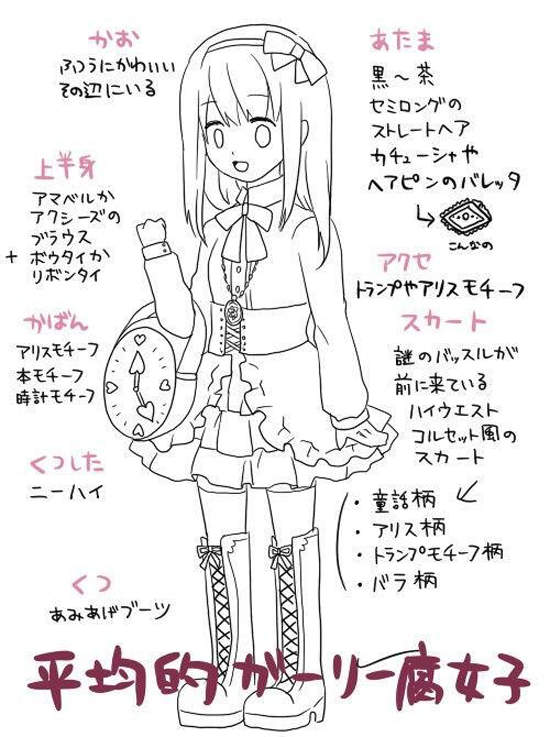 かお
ふつうにかわいい
その辺にいる
あたま
黒〜茶
セミロングの
ストレートヘア
カチューシャや
ヘアピンのバレッタ
こんなの
上半身
アマベルか
アクシーズの
ブラウス
+ ボウタイか
リボンタイ
アクセ
トランプやアリスモチーフ
かばん
アリスモチーフ
本モチーフ
時計モチーフ
スカート
謎のバッスルが
前に来ている
ハイウエスト
コルセット風の
スカート
・童話柄
・アリス柄
・トランプモチーフ柄
・バラ柄
くつした
ニーハイ
くつ
あみあげブーツ
平均的ガーリー腐女子